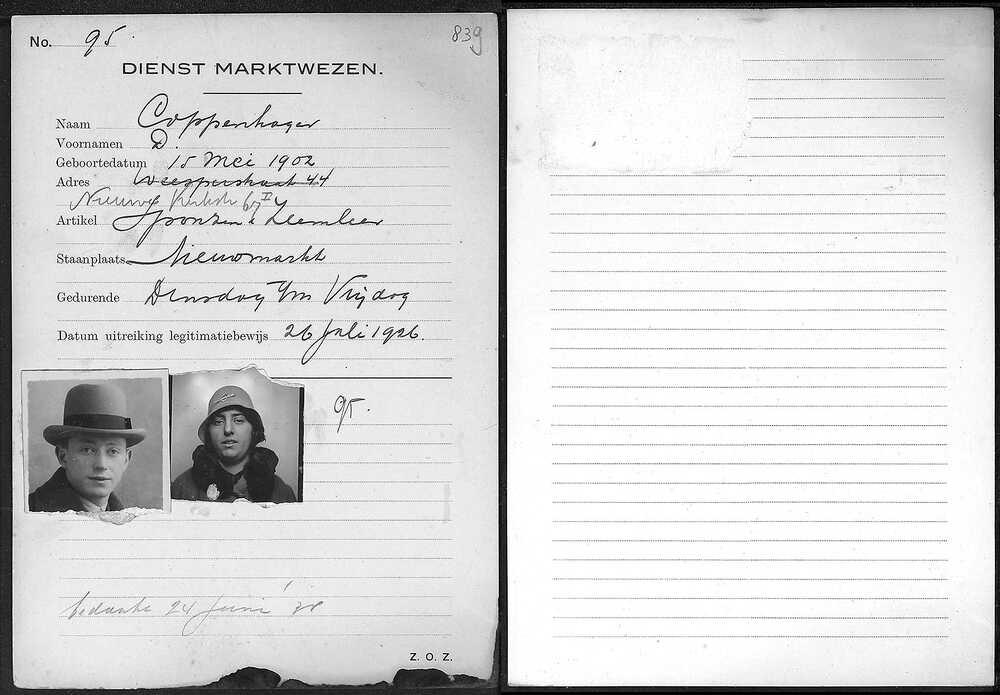 No. 95. 839
DIENST MARKTWEZEN.
Naam Coppenhager
Voornamen D.
Geboortedatum 15 Mei 1902
Adres Weesperstraat 44
Nieuwe Kerkstr 67 II
Artikel Sponzen & Zeemleer
Staanplaats Nieuwmarkt
Gedurende Dinsdag t/m Vrijdag
Datum uitreiking legitimatiebewijs 26 Juli 1926.
95.
bedankt 24 Juni
Z. O. Z.